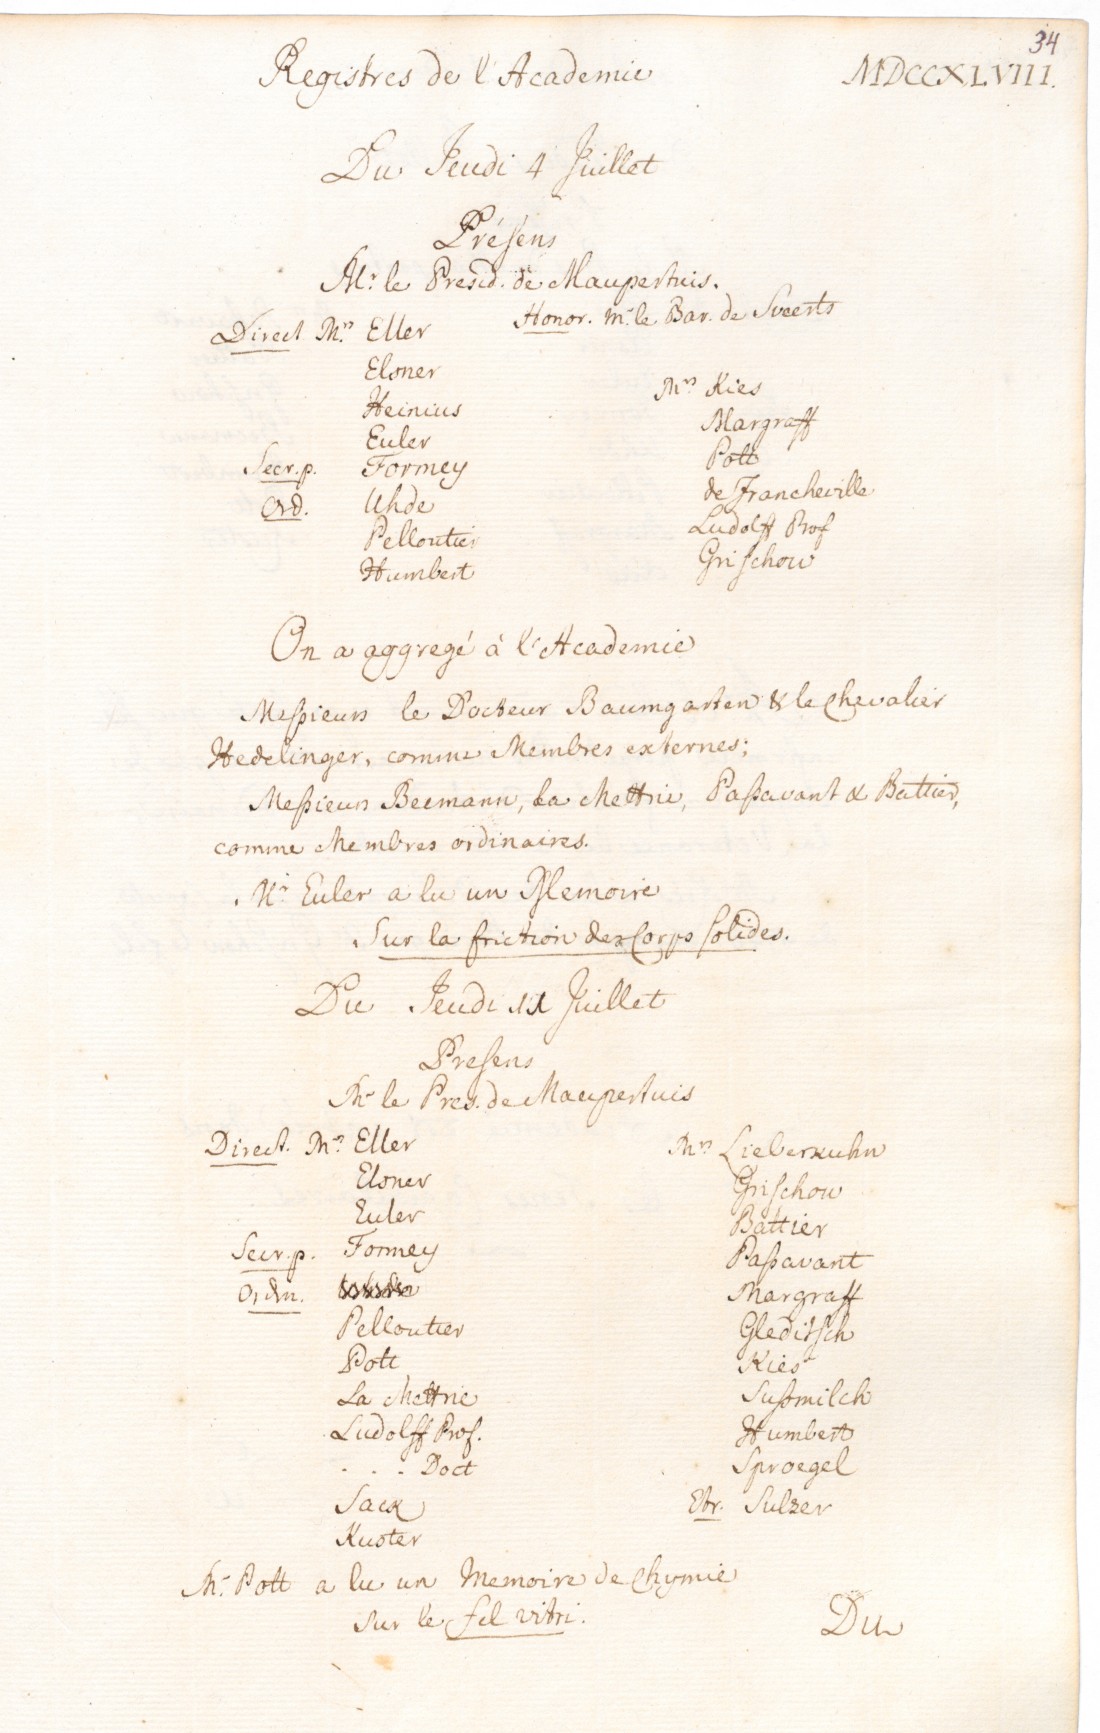 34
Registres de l'Academie MDCCXLVIII.
Du Jeudi 4 Juillet
Présens
Mr. le Presid. de Maupertuis.
Honor. Mr. le Bar. de Sweerts
Direct Mrs. Eller
Elsner
Heinius
Euler
Secr. p. Formey
Ord. Uhde
Pelloutier
Humbert
Mrs Kies
Margraff
Pott
de Francheville
Ludolff Prof
Grischow
On a aggregé à l'Academie
Messieurs le Docteur Baumgarten & le Chevalier
Hedelinger, comme Membres externes;
Messieurs Becmann, La Mettrie, Passavant & Battier,
comme Membres ordinaires.
Mr. Euler a lu un Memoire
Sur la friction des Corps solides.
Du Jeudi 11 Juillet
Presens
Mr le Pres. de Maupertuis
Direct. Mrs Eller
Elsner
Euler
Secr. p. Formey
Ordin.
Pelloutier
Pott
La Mettrie
Ludolff Prof.
. . . Doct
Sack
Kuster
Mrs Lieberkuhn
Grischow
Battier
Passavant
Margraff
Gleditsch
Kies
Sussmilch
Humbert
Sproegel
Etr. Sulzer
Mr. Pott a lu un Memoire de Chymie
sur le fel vitri.
Du